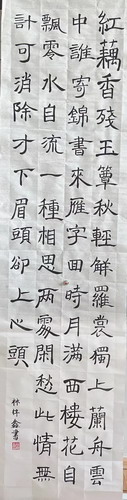 紅藕香殘玉簟秋輕解羅裳獨上蘭舟雲
中誰寄錦書來雁字回時月滿西樓花自
飄零水自流一種相思两處閑愁此情無
計可消除才下眉頭卻上心頭